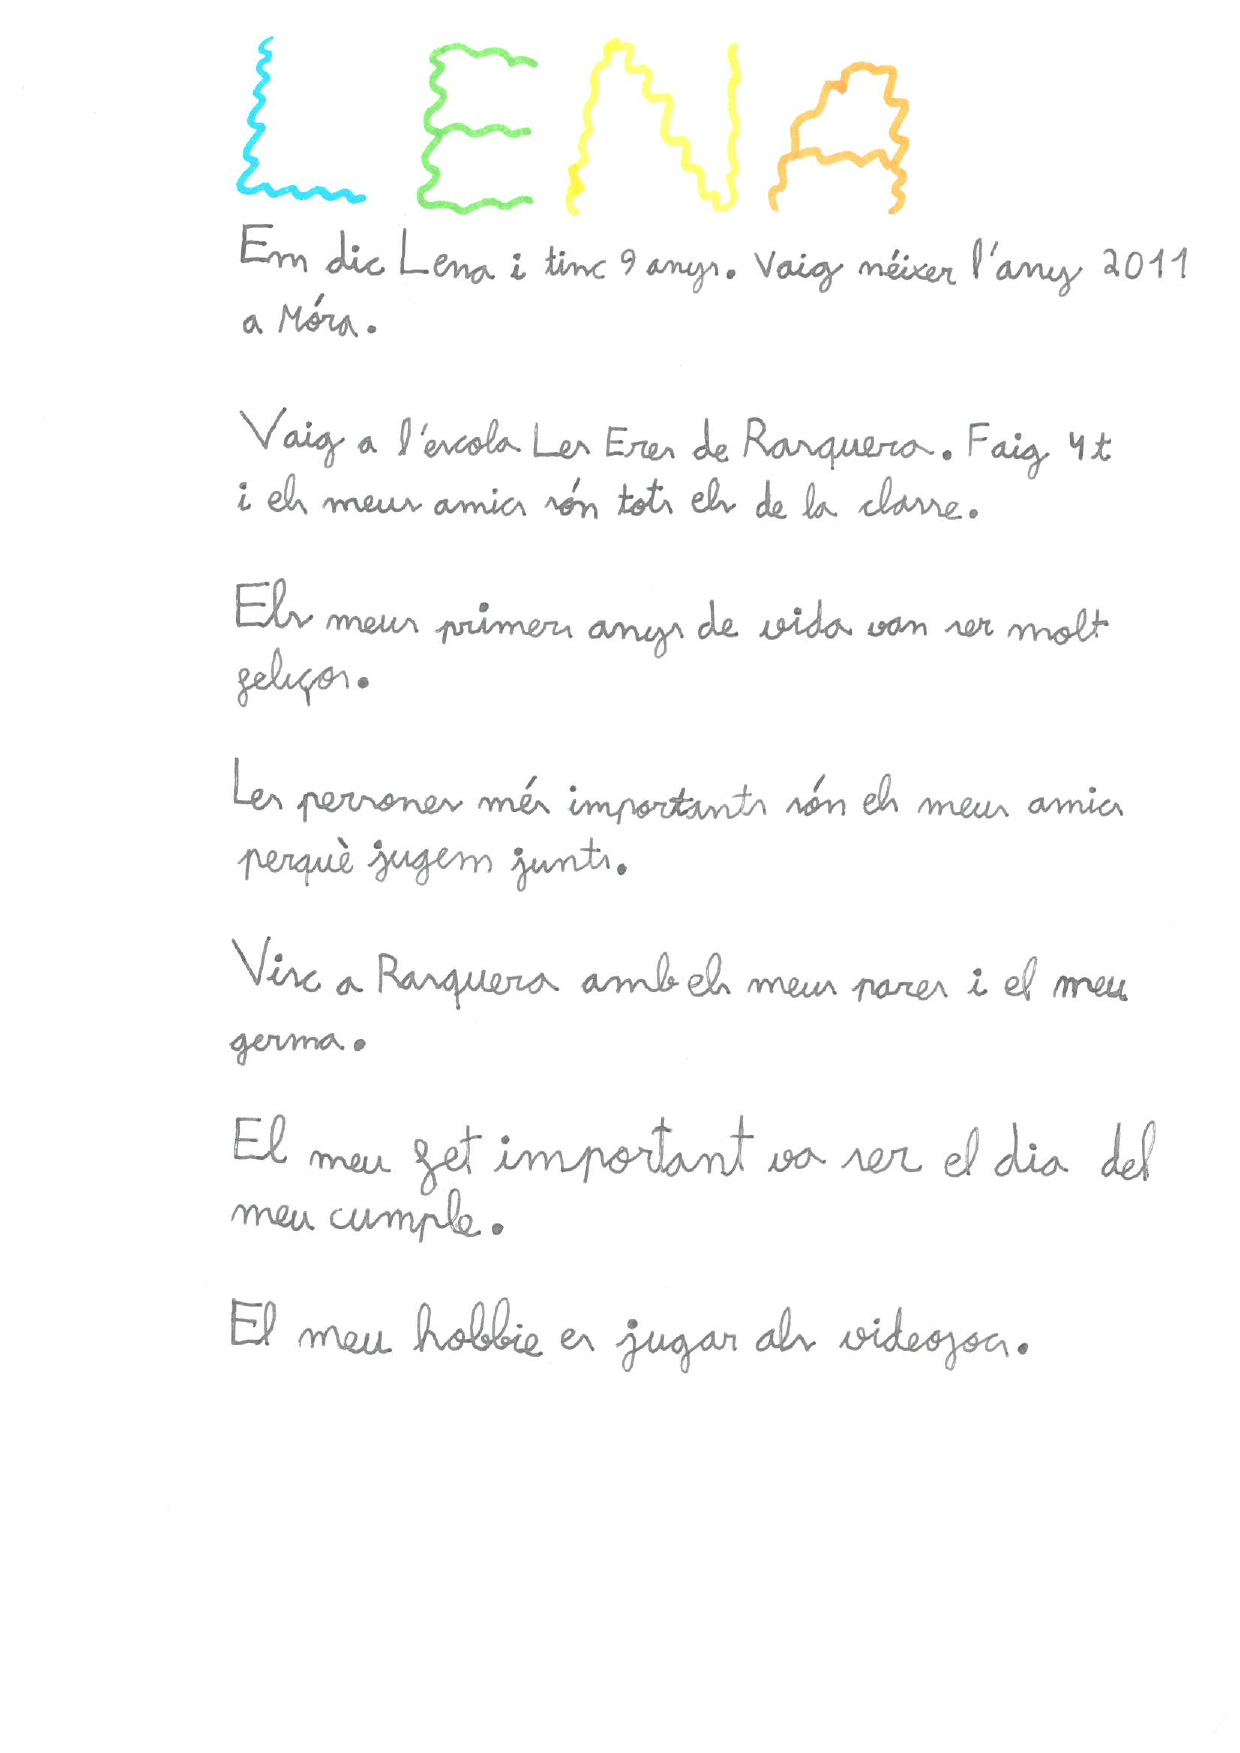 LENA
Em dic Lena i tinc 9 anys. Vaig néixer l'any 2011
a Móra.
Vaig a l'escola Les Eres de Rasquera. Faig 4t
i els meus amics són tots els de la classe.
Els meus primers anys de vida van ser molt
feliços.
Les persones més importants són els meus amics
perquè jugem junts.
Visc a Rasquera amb els meus pares i el meu
germa.
El meu fet important va ser el dia del
meu cumple.
El meu hobbie es jugar als videojocs.